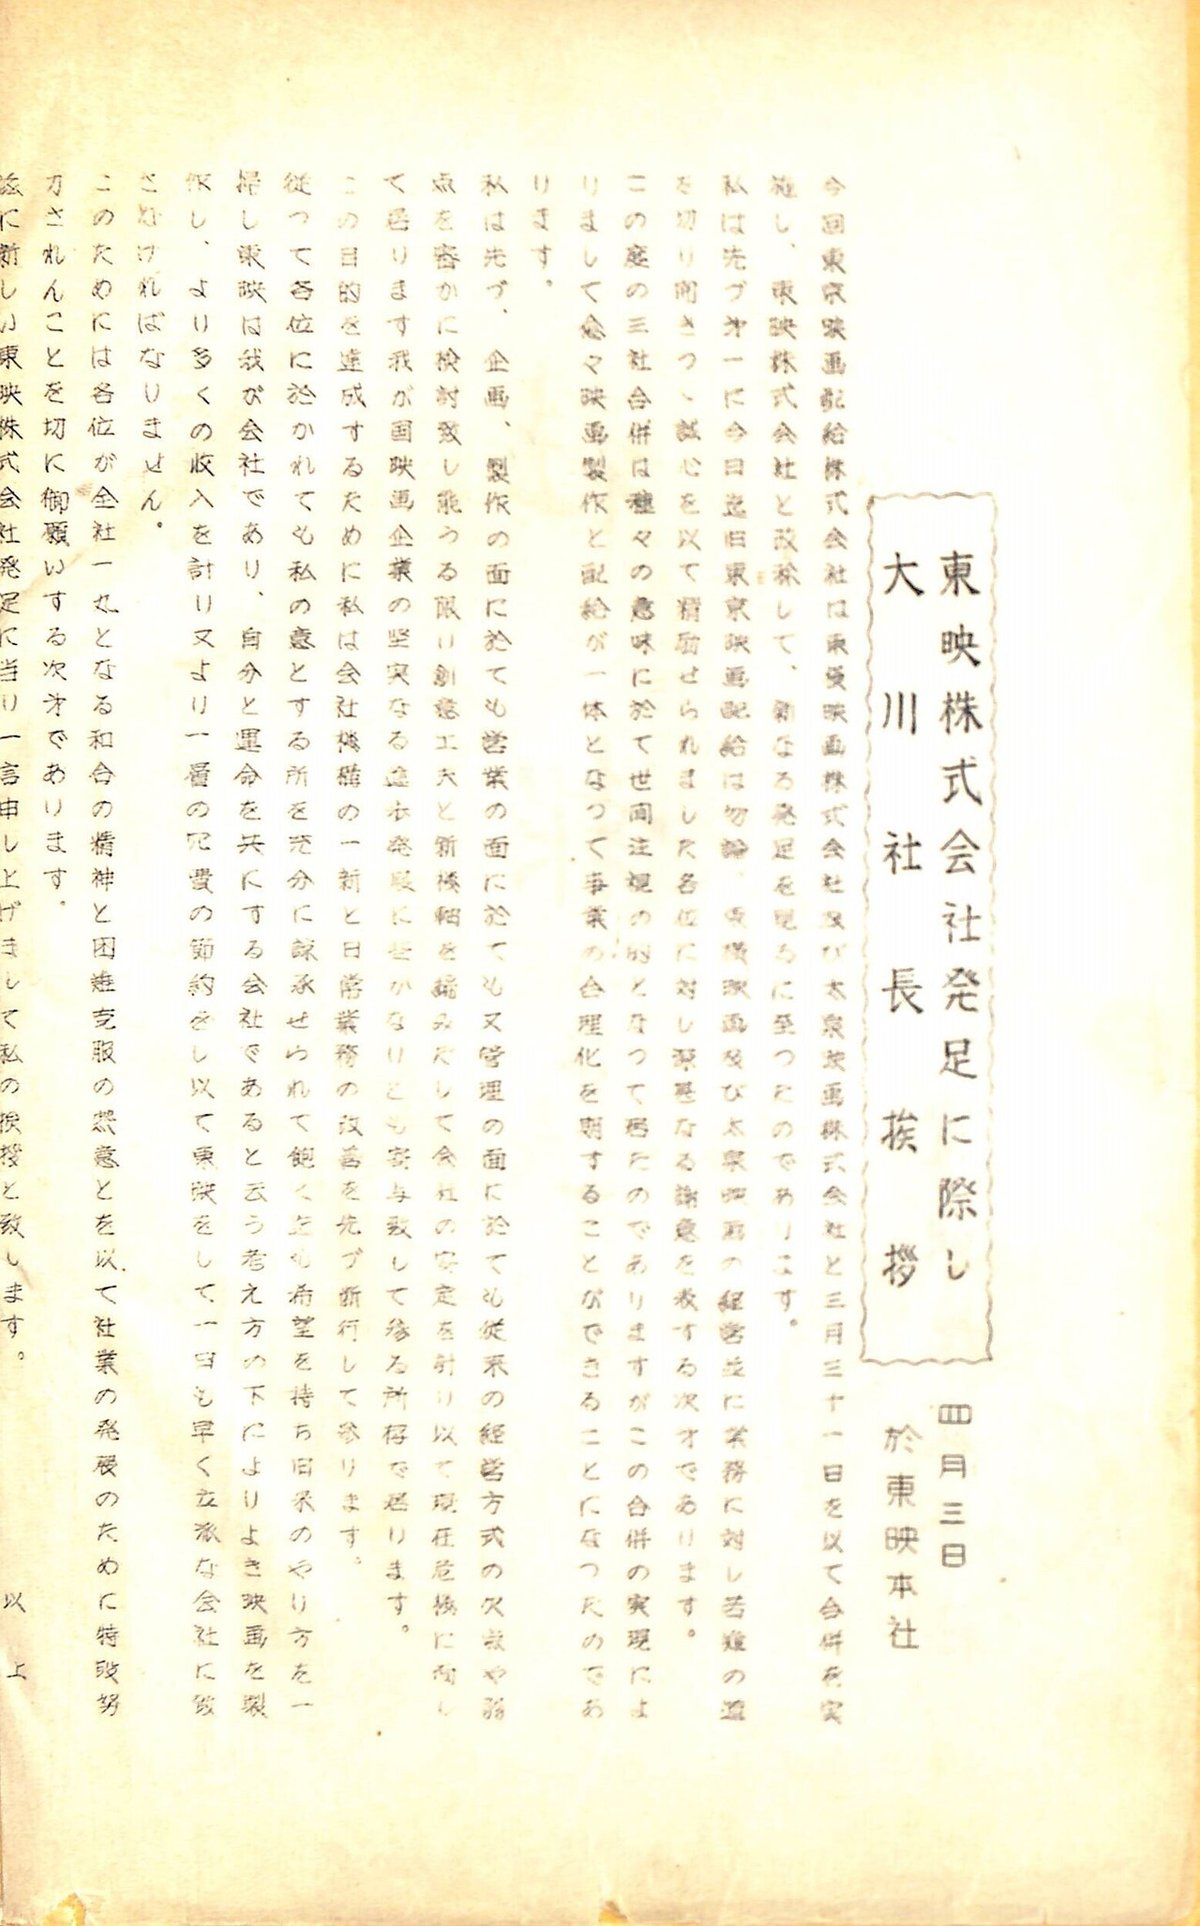 東映株式会社発足に際し
大川社長挨拶
四月三日
於東映本社
今回東京映画配給株式会社は東横映画株式会社及び太泉映画株式会社と三月三十一日を以て合併を実
施し、東映株式会社と改称して、新なる発足を見るに至つたのであります。
私は先づ才一に今日迄旧東京映画配給は勿論、東横映画及び太泉映画の経営並に業務に対し苦難の道
を切り開きつゝ誠心を以て精励せられました各位に対し深甚なる謝意を表する次才であります。
この度の三社合併は種々の意味に於て世間注視の的となつて居たのでありますがこの合併の実現によ
りまして愈々映画製作と配給が一体となつて事業の合理化を期することができることになつたのであ
ります。
私は先づ、企画、製作の面に於ても営業の面に於ても又管理の面に於ても従来の経営方式の欠陥や弱
点を審かに検討致し能うる限り創意工夫と新機軸を編みだして会社の安定を計り以て現在危機に面し
て居ります我が国映画企業の堅実なる進歩発展に些かなりとも寄与致して参る所存で居ります。
この目的を達成するために私は会社機構の一新と日常業務の改善を先づ断行して参ります。
従つて各位に於かれても私の意とする所を充分に諒承せられて飽く迄も希望を持ち旧来のやり方を一
掃し東映は我が会社であり、自分と運命を共にする会社であると云う考え方の下によりよき映画を製
作し、より多くの收入を計り又より一層の冗費の節約をし以て東映をして一日も早く立派な会社に致
さなければなりません。
このためには各位が全社一丸となる和合の精神と困難克服の熱意とを以て社業の発展のために特段努
力されんことを切に御願いする次才であります。
茲に新しい東映株式会社発足に当り一言申し上げまして私の挨拶と致します。
以上